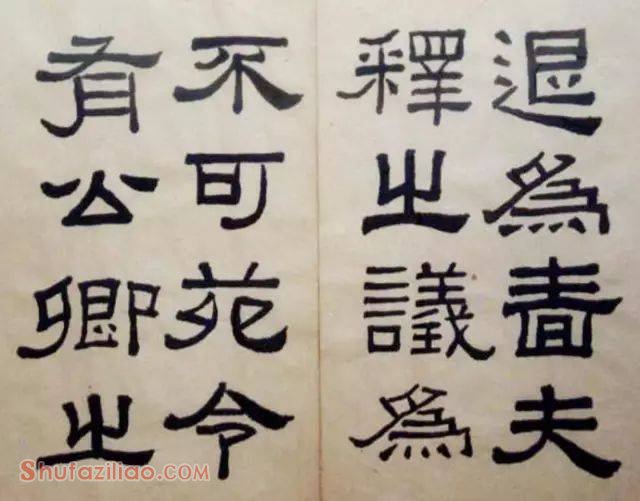 退為嗇夫
釋之議為
不可苑令
有公卿之
Shufaziliao.com